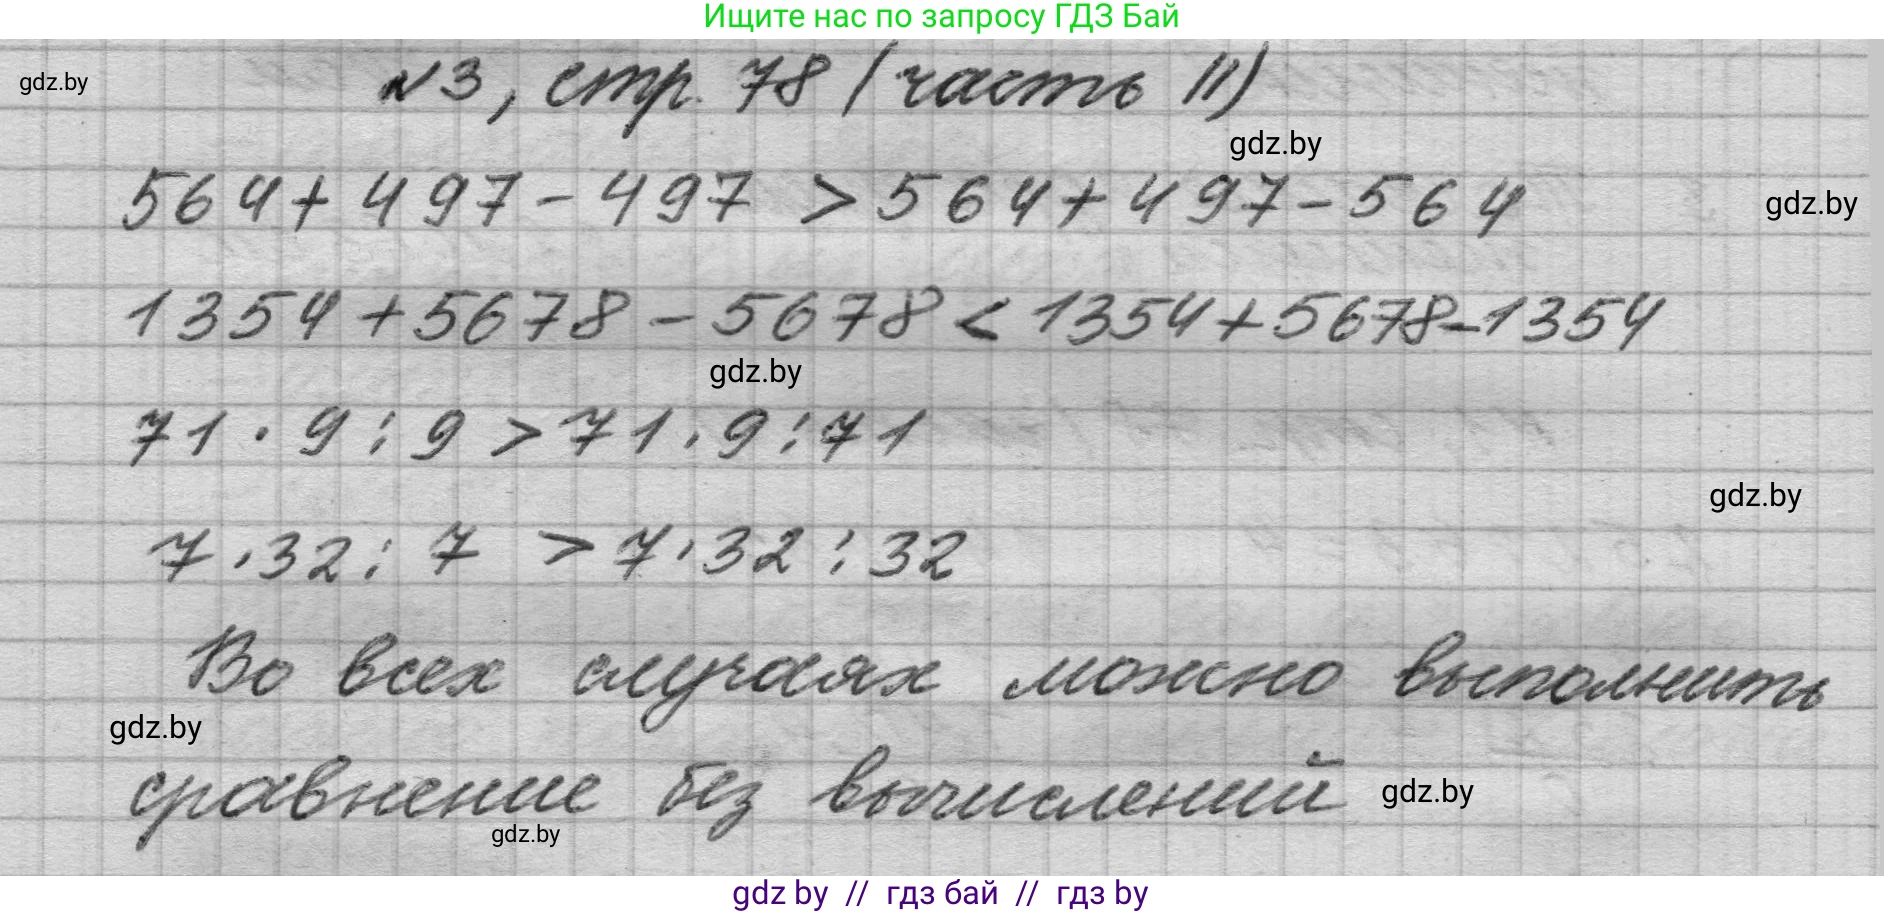 Ищите нас по запросу ГДЗ Бай
gdz.by
№3, стр. 78 (часть II)
gdz.by
564+497-497 > 564+497-564
gdz.by
1354+5678-5678 < 1354+5678-1354
gdz.by
71·9:9 > 71·9:71
gdz.by
7·32:7 > 7·32:32
Во всех случаях можно выполнить
gdz.by
сравнение без вычислений
gdz.by
gdz.by
gdz by // гдз бай // гдз by